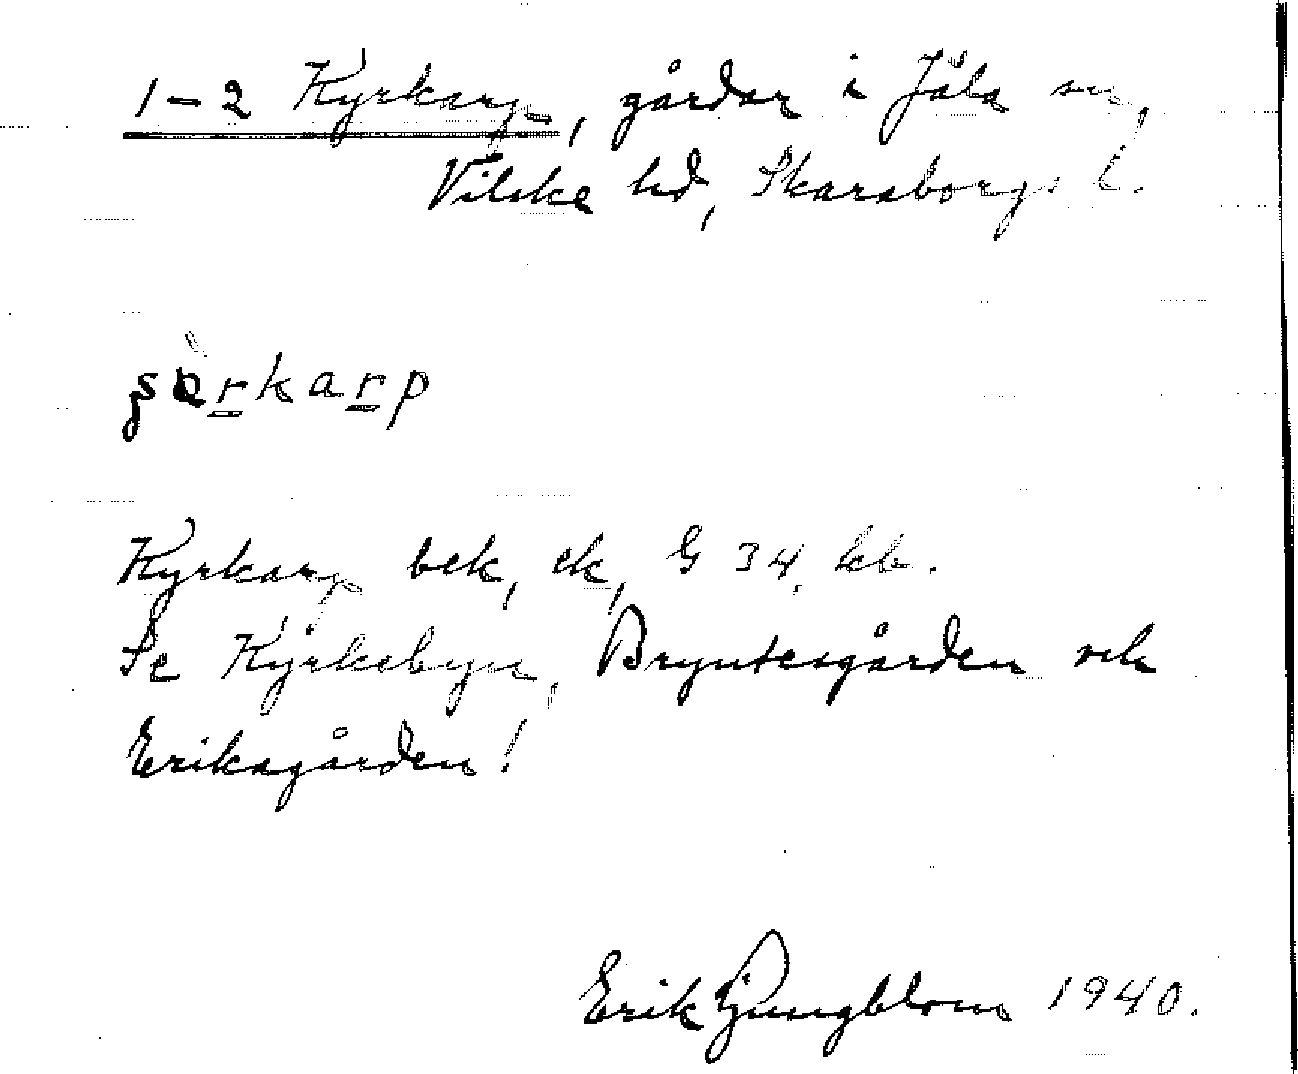 1-2 Kyrkarp, gårdar i Jäla sn,
Vilske hd, Skaraborgs l.
Kyrkarp bek, ek, G 34, kb.
Se Kyrkebyn, Bryntesgården och
Eriksgården!
Erik Ljungblom 1940.